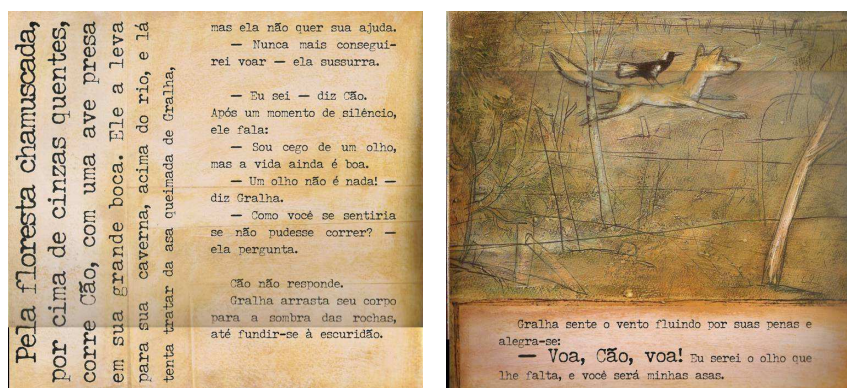 Pela floresta chamuscada,
por cima de cinzas quentes,
corre Cão, com uma ave presa
em sua grande boca. Ele a leva
para sua caverna, acima do rio, e lá
tenta tratar da asa queimada de Gralha,
mas ela não quer sua ajuda.
— Nunca mais consegui-
rei voar — ela sussurra.
— Eu sei — diz Cão.
Após um momento de silêncio,
ele fala:
— Sou cego de um olho,
mas a vida ainda é boa.
— Um olho não é nada! —
diz Gralha.
— Como você se sentiria
se não pudesse correr? —
ela pergunta.
Cão não responde.
Gralha arrasta seu corpo
para a sombra das rochas,
até fundir-se à escuridão.
Gralha sente o vento fluindo por suas penas e
alegra-se:
— Voa, Cão, voa! Eu serei o olho que
lhe falta, e você será minhas asas.